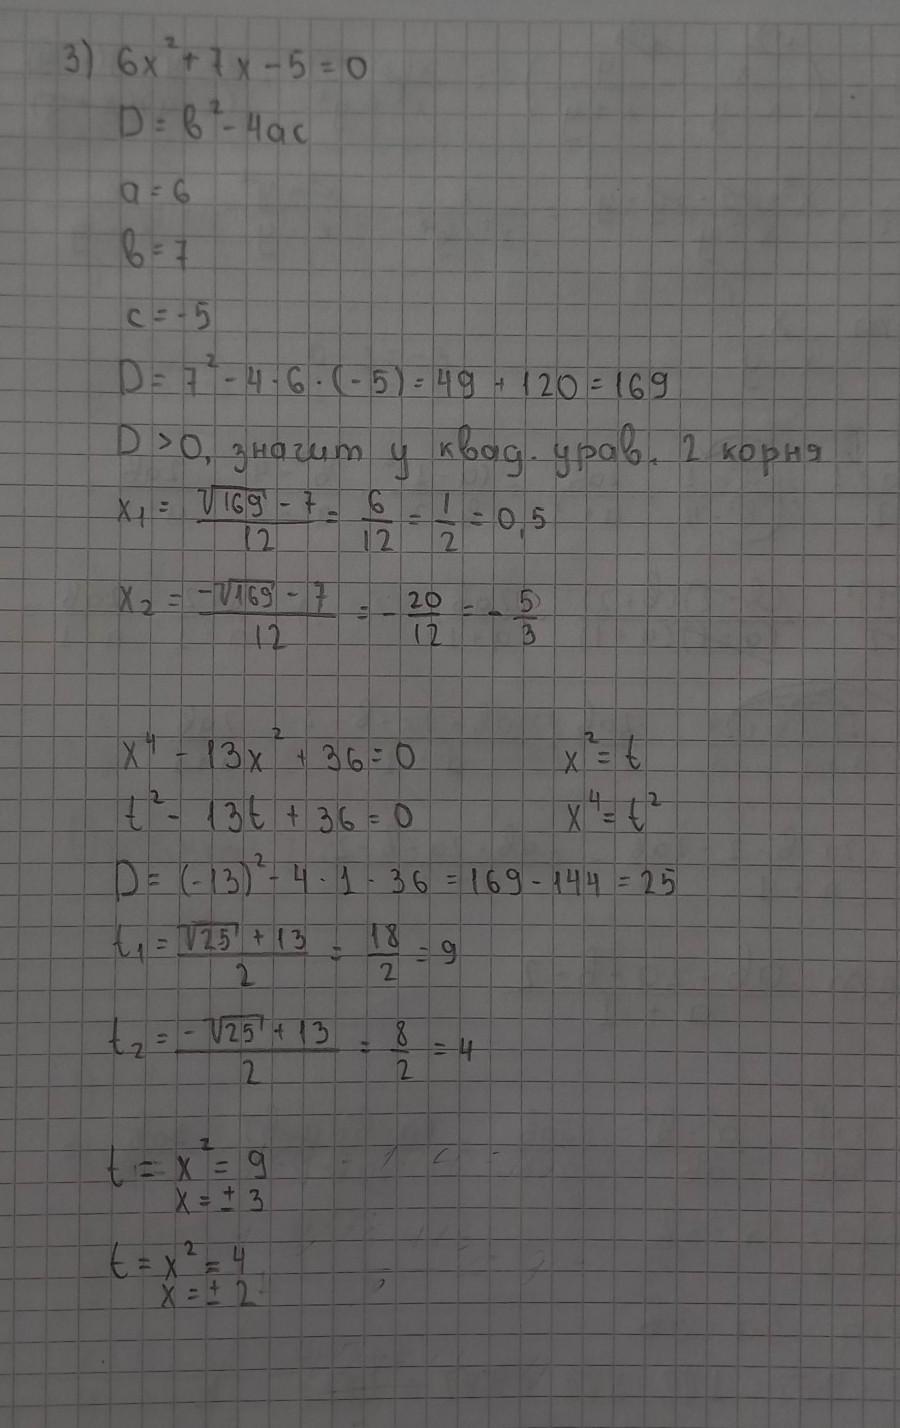 3) 6x² + 7x - 5 = 0
D = b² - 4ac
a = 6
b = 7
c = -5
D = 7² - 4 · 6 · (-5) = 49 + 120 = 169
D > 0, значит у квад. урав. 2 корня
x₁ = (√169 - 7)/12 = 6/12 = 1/2 = 0,5
x₂ = (-√169 - 7)/12 = -20/12 = -5/3
x⁴ - 13x² + 36 = 0 x² = t
t² - 13t + 36 = 0 x⁴ = t²
D = (-13)² - 4 · 1 · 36 = 169 - 144 = 25
t₁ = (√25 + 13)/2 = 18/2 = 9
t₂ = (-√25 + 13)/2 = 8/2 = 4
t = x² = 9
x = ± 3
t = x² = 4
x = ± 2